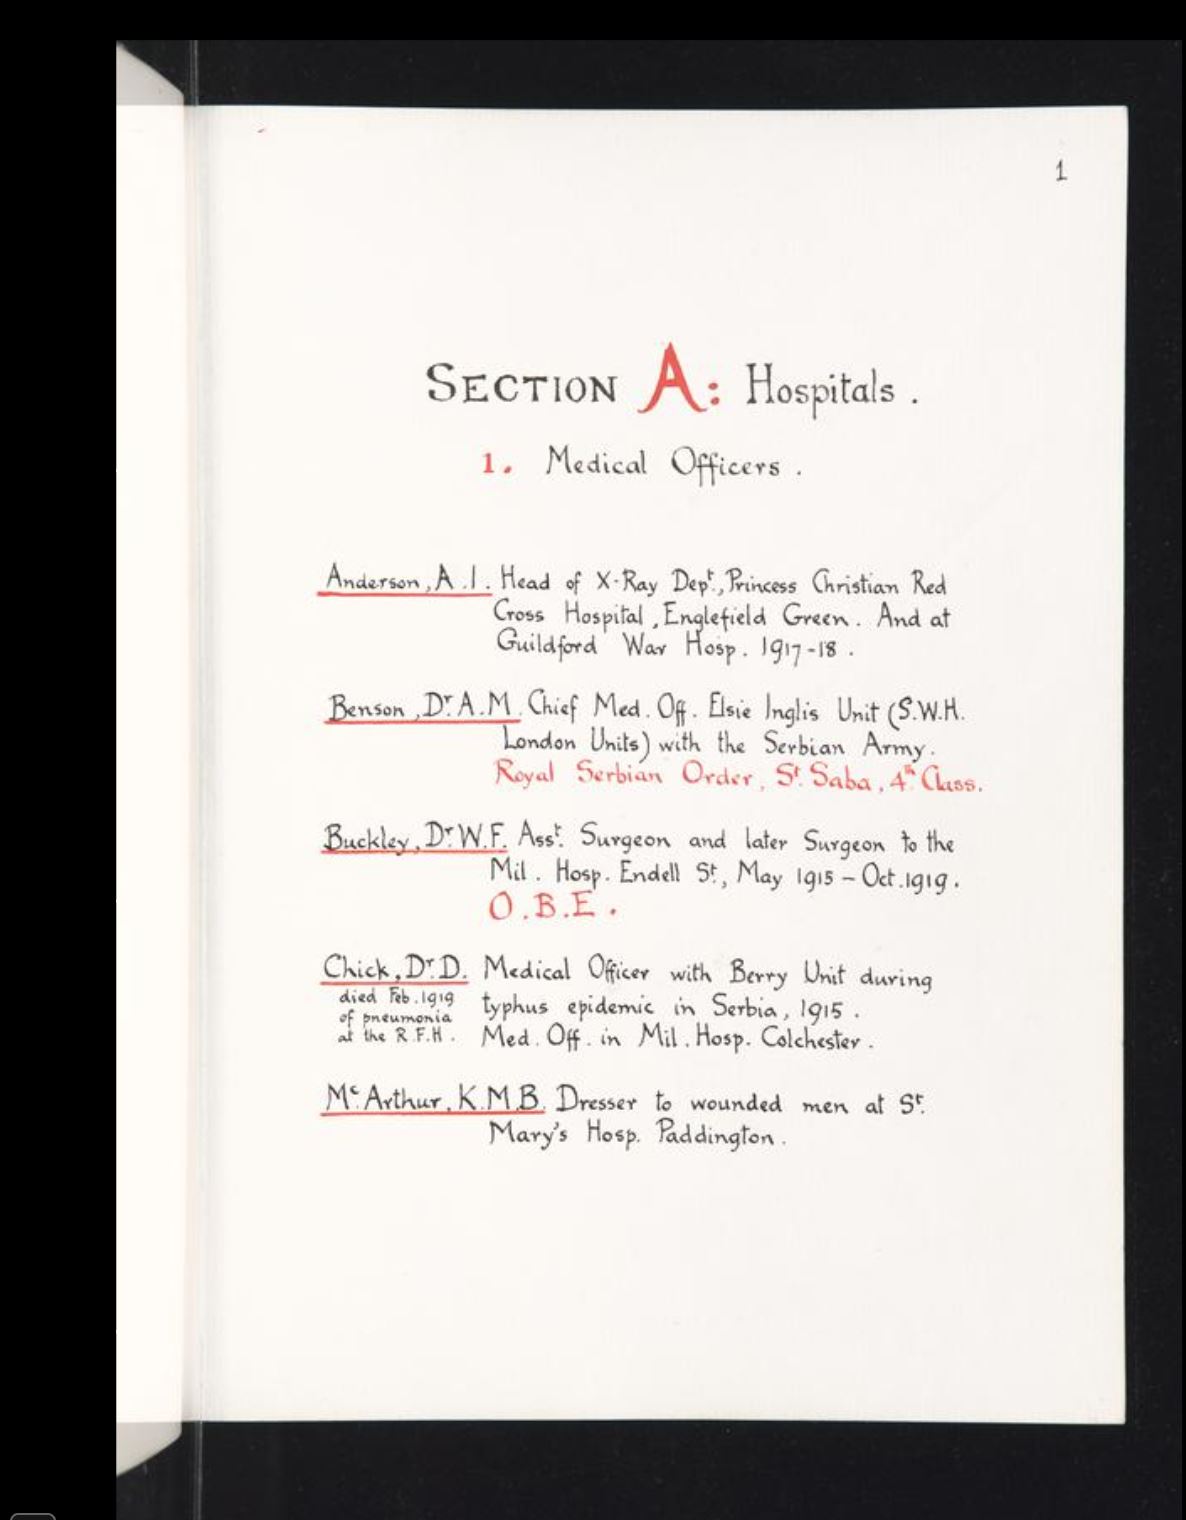 1
SECTION A: Hospitals.
1. Medical Officers.
Anderson, A.I. Head of X-Ray Dept., Princess Christian Red
Cross Hospital, Englefield Green. And at
Guildford War Hosp. 1917-18.
Benson, Dr. A.M. Chief Med. Off. Elsie Inglis Unit (S.W.H.
London Units) with the Serbian Army.
Royal Serbian Order, St. Saba, 4th Class.
Buckley, Dr. W.F. Asst. Surgeon and later Surgeon to the
Mil. Hosp. Endell St., May 1915 – Oct. 1919.
O.B.E.
Chick, Dr. D. Medical Officer with Berry Unit during
died Feb. 1919 typhus epidemic in Serbia, 1915.
of pneumonia
at the R.F.H. Med. Off. in Mil. Hosp. Colchester.
Mc. Arthur, K.M.B. Dresser to wounded men at St.
Mary's Hosp. Paddington.